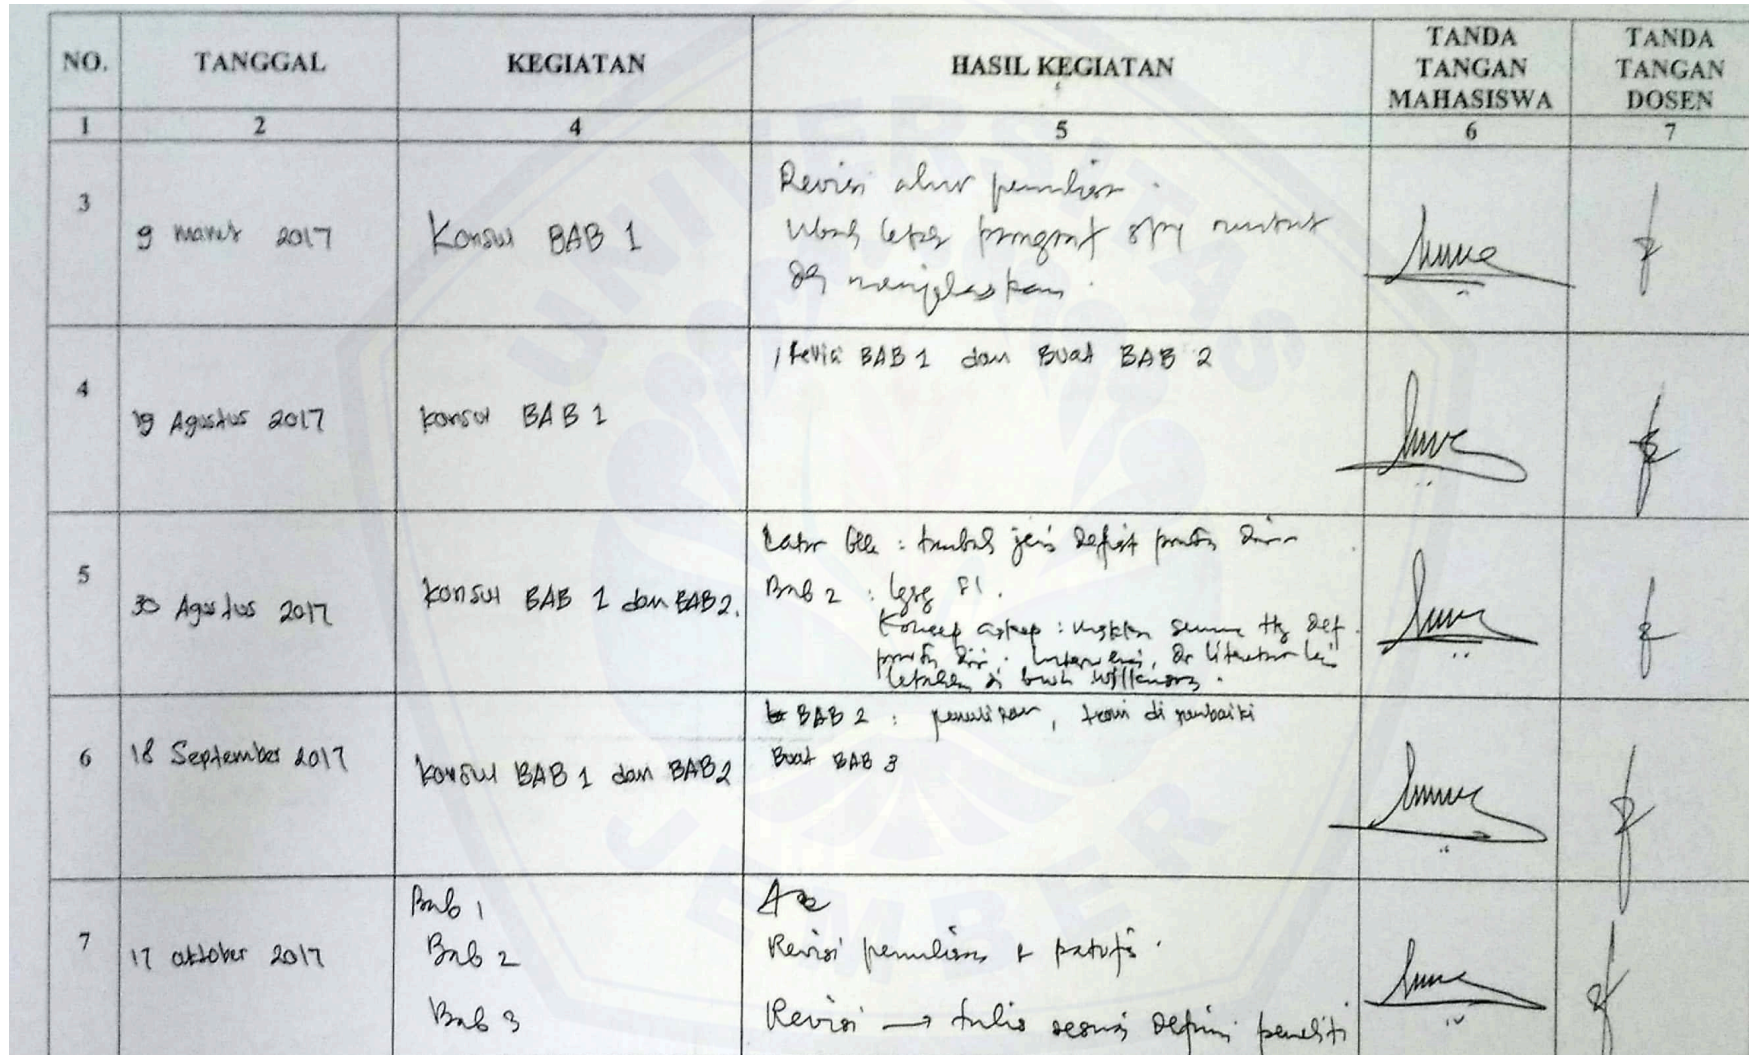 NO. TANGGAL KEGIATAN HASIL KEGIATAN TANDA TANGAN MAHASISWA TANDA TANGAN DOSEN
1 2 4 5 6 7
3
9 Maret 2017
Konsul BAB 1
Revisi alur penulisan.
Ubah letak paragraf spy runtut
dg menjelaskan.
4
19 Agustus 2017
Konsul BAB 1
Revisi BAB 1 dan Buat BAB 2
5
30 Agustus 2017
Konsul BAB 1 dan BAB 2.
Latar Blk : tambah jenis defisit
Bab 2 :
Konsep askep : semua ttg def.
Intervensi, dr literatur
di buku
6
18 September 2017
Konsul BAB 1 dan BAB 2
BAB 2 : penulisan, di perbaiki
Buat BAB 3
7
17 Oktober 2017
Bab 1
Bab 2
Bab 3
Acc
Revisi penulisan &
Revisi → tulis sesuai definisi peneliti
UNIVERSITAS
JEMBER